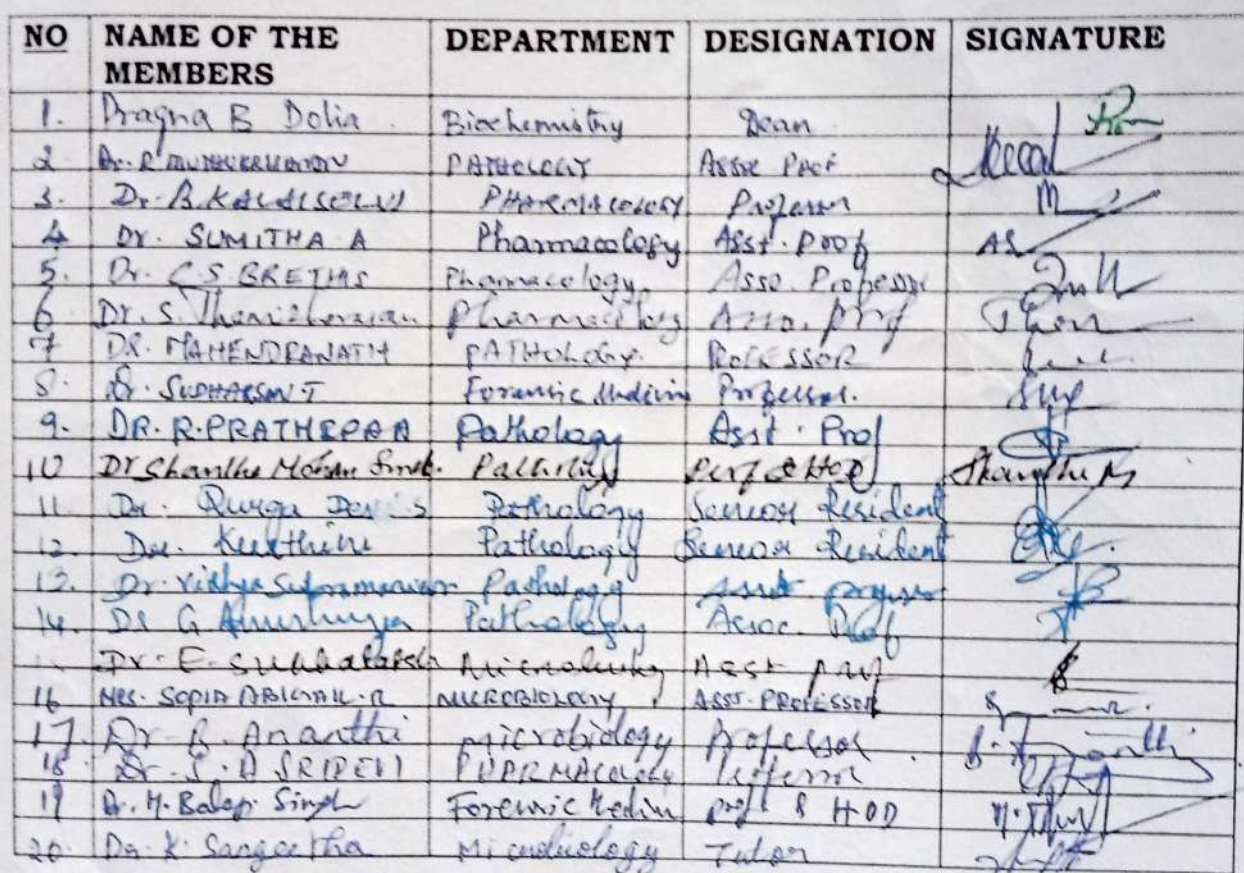 NO NAME OF THE MEMBERS DEPARTMENT DESIGNATION SIGNATURE
1. Pragna B Dolia Biochemistry Dean
2. Dr. R PATHOLOGY Assoc Prof
3. Dr. B. KALAISELVI PHARMACOLOGY Professor M
4 Dr. SUMITHA A Pharmacology Asst. Prof AS
5. Dr. C.S. BRETHIS Pharmacology Asso. Professor
6 Dr. S. Pharmacology Asso. Prof
7 DR. MAHENDRANATH PATHOLOGY. PROFESSOR
8. Dr. SUDHARSAN T Forensic Medicine Professor.
9. DR. R. PRATHEPAA Pathology Asst. Prof
10 Dr Shantha Mohan Pathology Prof & HOD
11. Dr. Durga Devi S Pathology Senior Resident
12. Dr. Keerthini Pathology Senior Resident
13. Dr. Vidhya Subramanian Pathology Asst professor
14. Dr G Anushuya Pathology Assoc. Prof
Dr. E. Microbiology Asst prof
16 Mrs. SOPIA ABIGAIL. R MICROBIOLOGY ASST. PROFESSOR
17. Dr. B. Ananthi Microbiology Professor
18 Dr. S. A SRIDEVI PHARMACOLOGY Professor
19 Dr. M. Balaji Singh Forensic Medicine prof & HOD
20. Dr. K. Sangeetha Microbiology Tutor